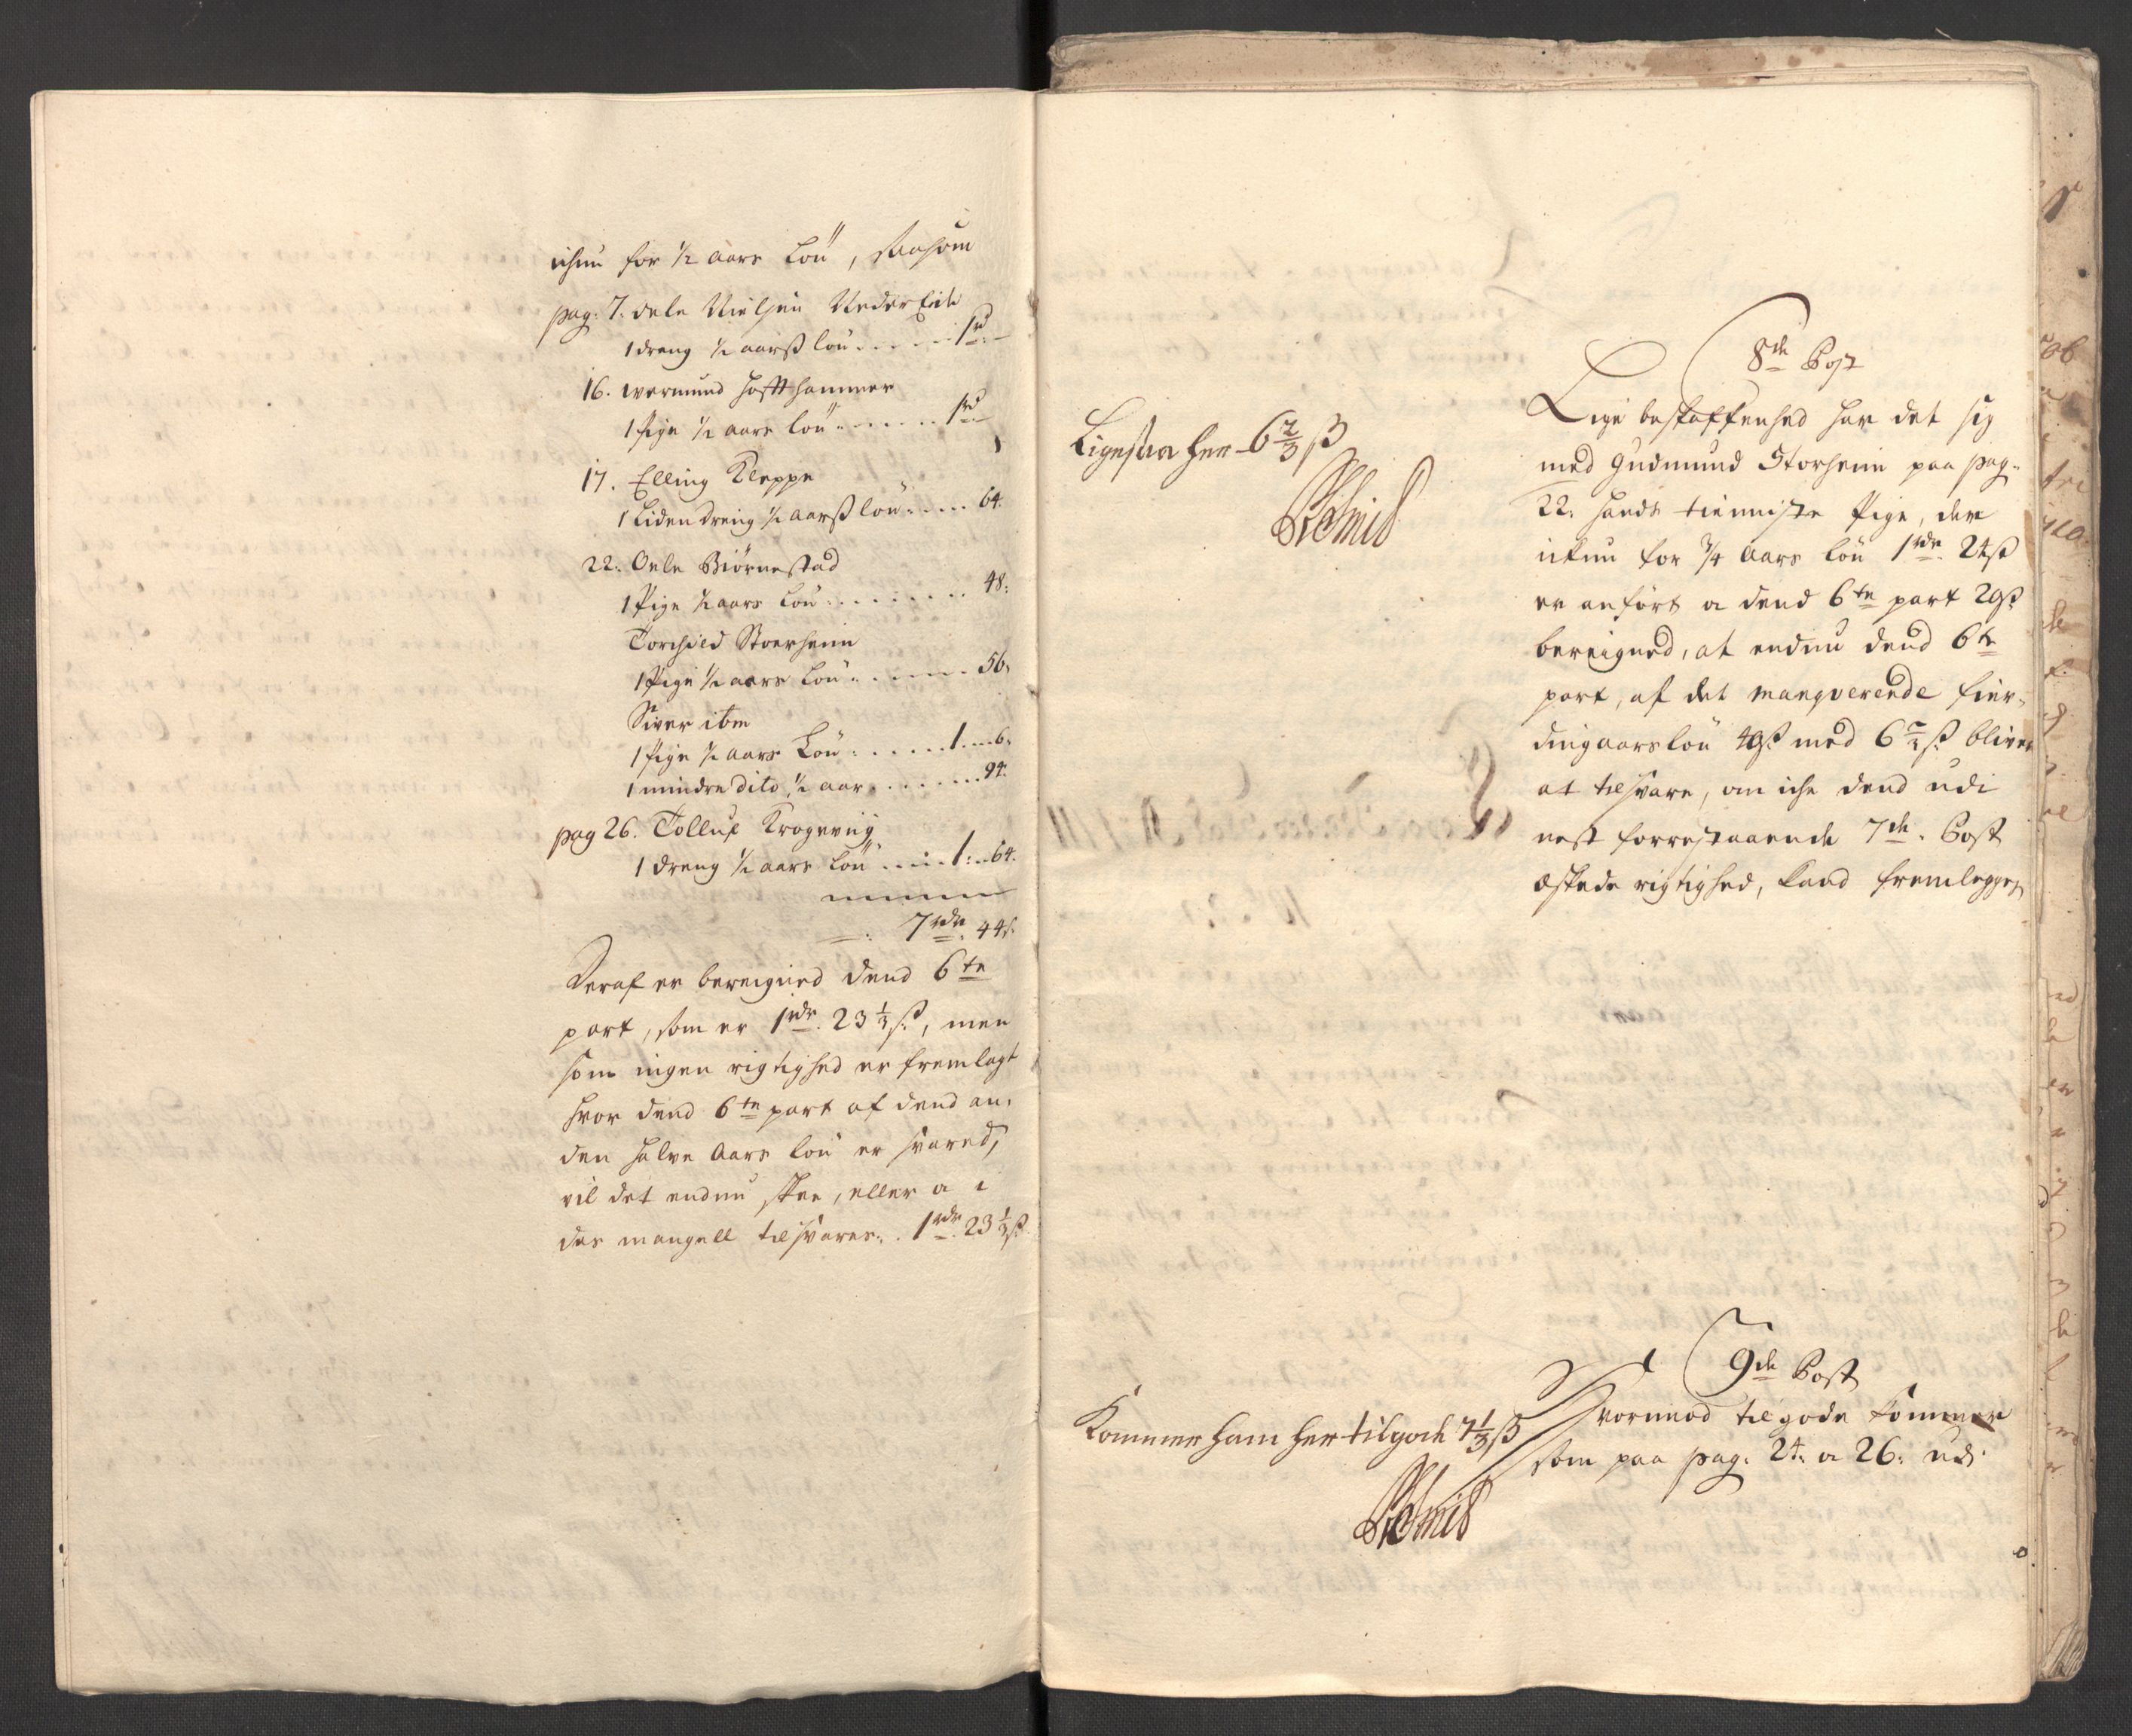 ichun for ½ aars Løn, saasom
pag: 7. Oele Nielsen Nedre Eide
1 dreng ½ aarß løn . . . . . 1 rd: -
16. Wermund Hofftthammer
1 Pige ½ aars løn . . . . . . 1 rd -
17. Elling Kleppe
1 Liden dreng ½ aarß løn . . . . 64.
22. Oele Biørnestad
1 Pige ½ aars Løn . . . . . . . . 48:
Torchild Stoerheim
1 Pige ½ aars Løn . . . . . 56:
Siver ibm
1 Pige ½ aars Løn . . . . . 1. - 6:
1 mindre dito ½ aar . . . . . . . 94.
pag 26. Tolluf Krogeviig
1 dreng ½ aars Løn . . . . 1: - 64.
7 rdr. 44 s.
Deraf er bereigned dend 6te
part, som er 1 rdr. 23 ⅓ ß, men
som ingen rigtighed er fremlagt
hvor dend 6te part af dend an-
den halve Aars løn er svared,
vil det endnu skee, eller a i
des mangell tilsvares . . 1 rdr 23 ⅓ ß.
Ligesaa her 6 ⅔ ß
8de Post
Lige beskaffenhed har det sig
med Gudmund Storheim paa pag.
22. hands tienniste Pige, der
ickun for ¾ Aars løn 1 rdr. 24 ß
er anført a dend 6te part 20 ß
bereigned, at endnu dend 6te
part, af det manqverende fier-
dingaars løn 40 ß med 6 ⅔ ß. bliver
at tilsvare, om iche dend udi
nest forrestaaende 7de. Post
æskede rigtighed, kand fremlegges
Kommer ham her tilgode 7 ⅓ ß
9de Post
Hvormod til gode kommer
som paa pag. 24. a 26. udi